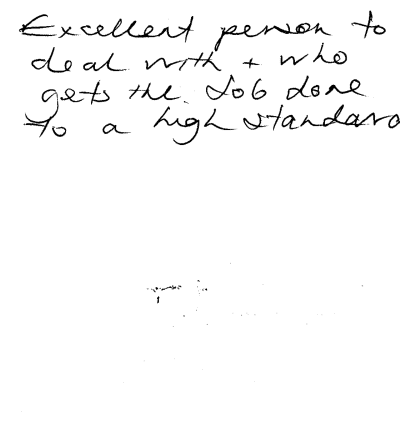 Excellent person to
deal with + who
gets the Job done
to a high standard